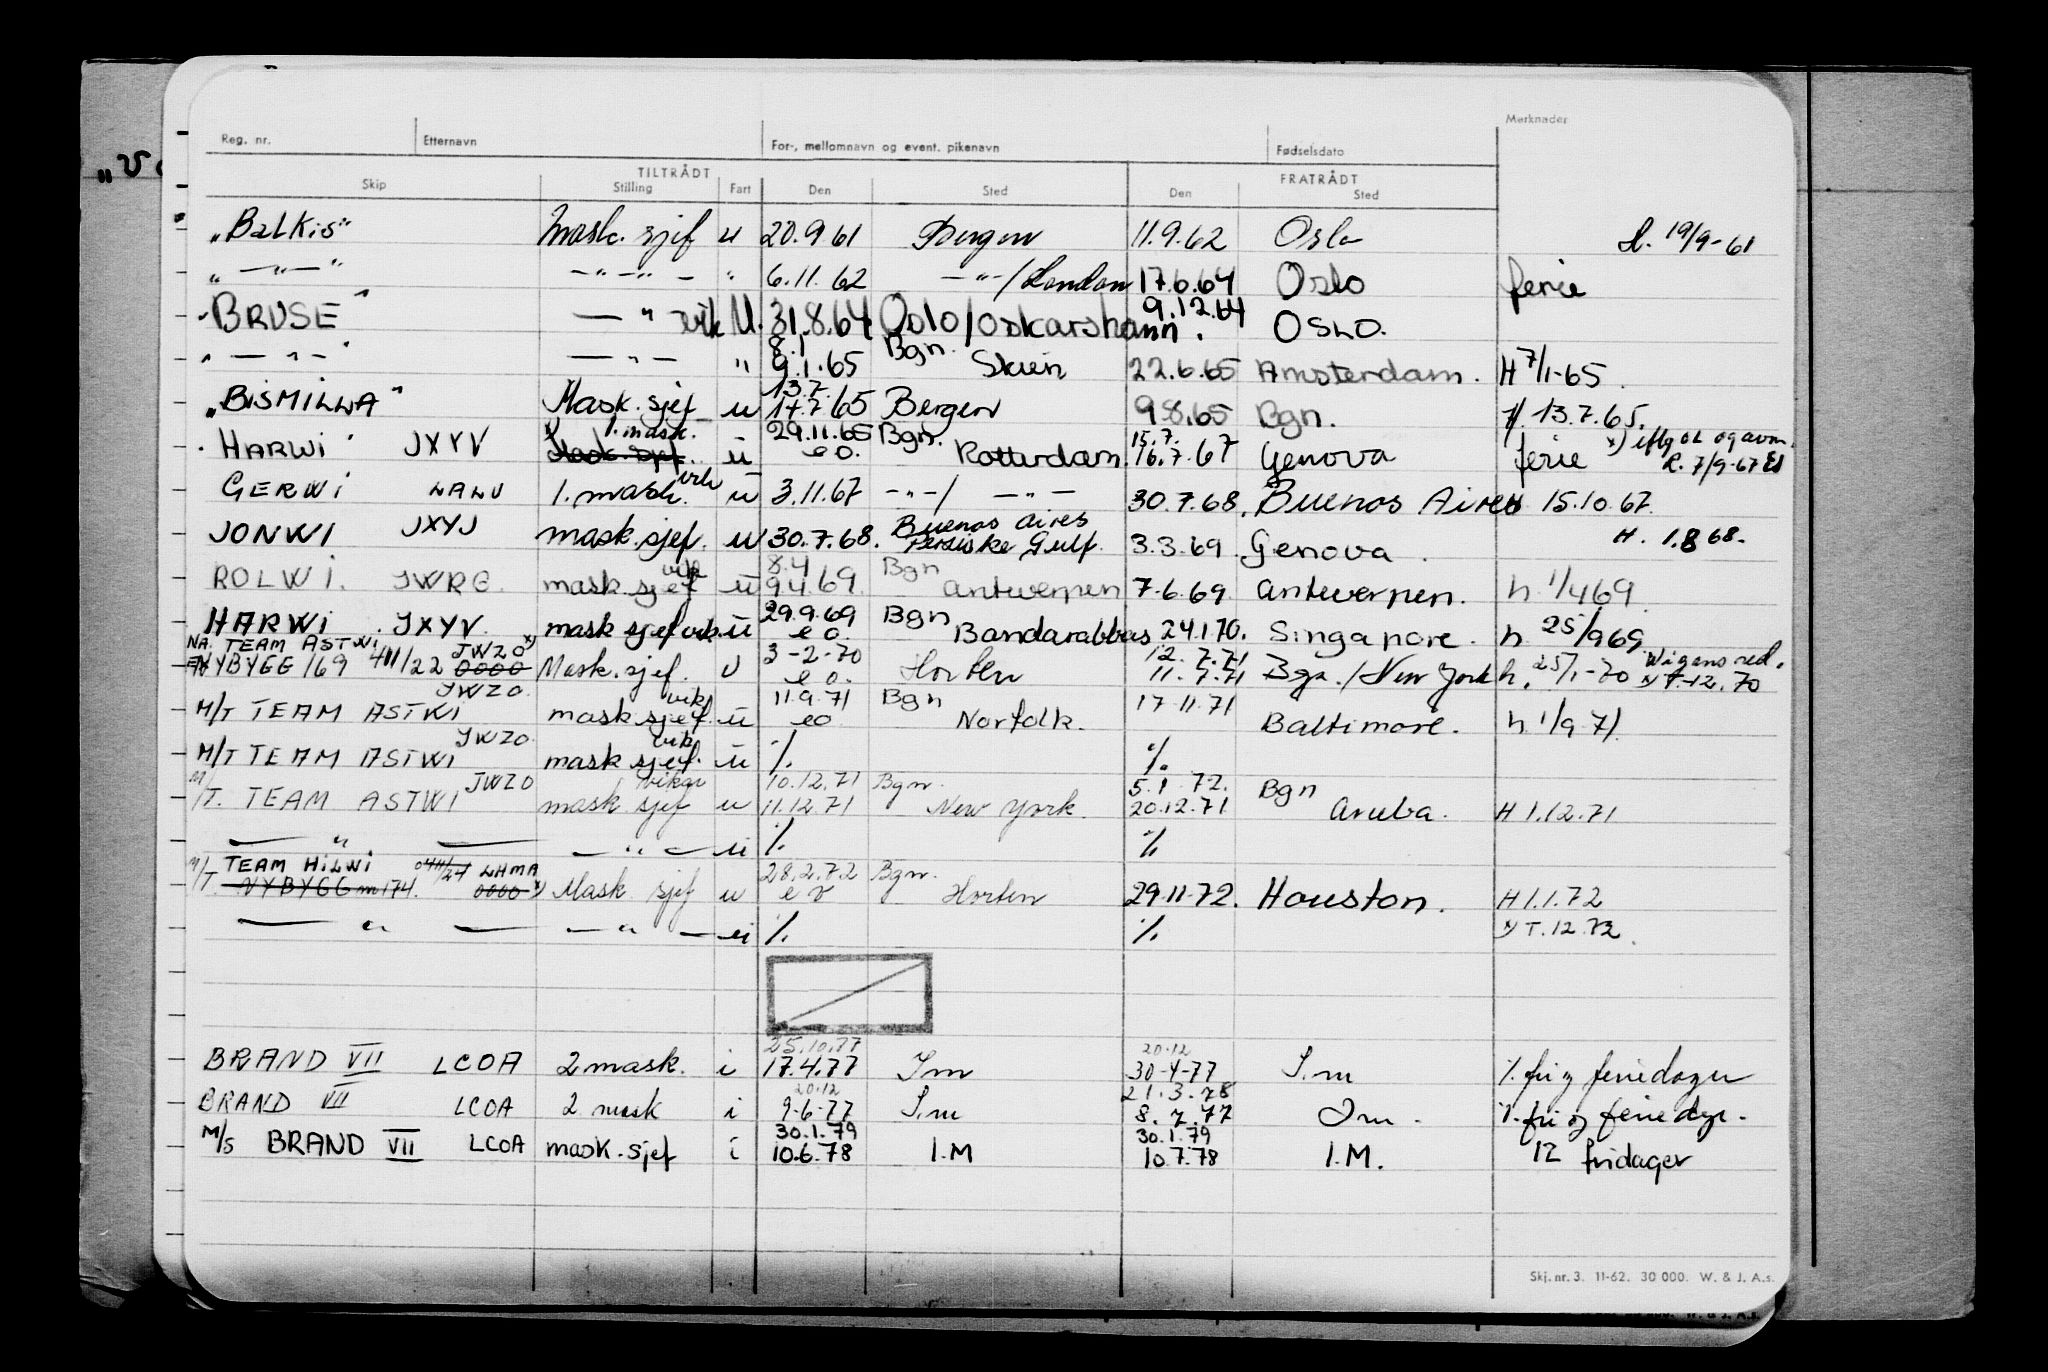 Merknader
Reg. nr. Etternavn For-, mellomnavn og event. pikenavn Fødselsdato
TILTRÅDT FRATRÅDT
Skip Stilling Fart Den Sted Den Sted
„BALKIS" Mask. sjef u 20.9 61 Bergen 11.9.62 Oslo H. 19/9-61
„ — " — " — " — " — " 6.11.62 — " — /London 17.6.64 Oslo ferie
"BRUSE" — " vik U. 31.8.64 Oslo/oskarshamn. 9.12.64 OSLO.
" — " — " — " — " 8.1 9.1.65 Bgn. Skien 22.6.65 Amsterdam. H 7/1-65.
„BISMILLA" Mask. sjef u 13.7. 14.7 65 Bergen 9.8.65 Bgn. H. 13.7.65.
"HARWI" JXYV x) 1. mask. Mask. sjef. u 29.11.65 e o. Bgn. Rotterdam. 15.7. 16.7.67 Genova ferie x) iflg og avm. R. 7/9-67
GERWI LALU 1. mask. vik u 3.11.67 — " — / — " — 30.7.68. Buenos Aires H 15.10.67.
JONWI JXYJ mask. sjef. u 30.7.68. Buenos aires Persiske Gulf. 3.3.69 Genova. H. 1.8 68.
ROLWI. JWRG. mask. sjef vik u 8.4 9.4.69. Bgn Antwerpen 7.6.69. Antwerpen. h. 1/4 69.
HARWI. JXYV. mask sjef vik. u 29.9.69 e o. Bgn Bandarabbas 24.1.70. Singapore. h. 25/9 69.
NA: TEAM ASTWI JWZO x)
NYBYGG 169 411/22 0000 Mask. sjef. U 3-2-70 e o. Horten 12.7.71 11.7.71 Bgn./New York h. 25/1-70 Wigans red. x) T.12.70
M/T TEAM ASTWI JWZO. mask sjef. vik. u 11.9.71 eo. Bgn Norfolk. 17.11.71 Baltimore. h. 1/9.71.
M/T TEAM ASTWI JWZO. mask sjef. vik. u ./. ./.
M/T. TEAM ASTWI JWZO mask sjef vikar u 10.12.71 11.12.71 Bgn. New York. 5.1.72. 20.12.71 Bgn Aruba. H 1.12.71
— " — — " — u ./. ./.
M/T. TEAM HILWI 0411/24 LHMA
NYBYGG nr 174. 0000 x) Mask sjef u 28.2.72 e o Bgn. Horten 29.11.72. Houston. H 1.1.72
— " — — " — u ./. ./. x) T.12.72.
BRAND VII LCOA 2 mask. i 25.10.77 17.4.77 I m 20.12 30-4-77 I. m ./. fri og feriedager
BRAND VII LCOA 2 mask i 20.12 9-6-77 I. m 21.3.78 8.7.77 I m. ./. fri og feriedgr.
M/S BRAND VII LCOA mask. sjef i 30.1.79 10.6.78 I.M 30.1.79 10.7.78 I.M. 12 fridager
Skj. nr. 3. 11-62. 30 000. W. & J. A.s.